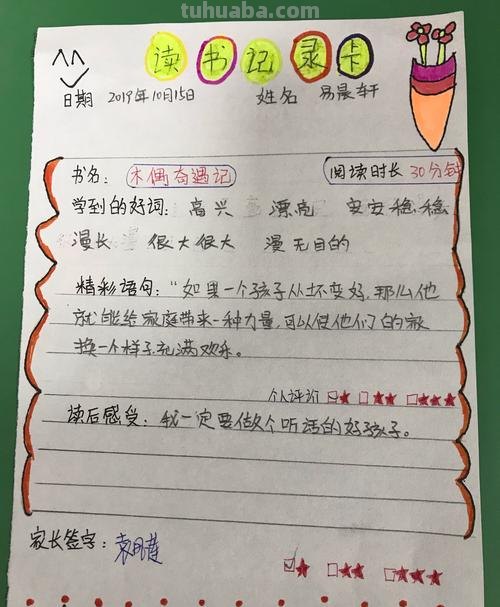 tuhuaba.com
读书记录卡
日期 2019年10月15日 姓名 易晨轩
书名: 木偶奇遇记 阅读时长 30分钟
学到的好词: 高兴 漂亮 安安稳稳
漫长 很大很大 漫无目的
精彩语句:“如果一个孩子从坏变好,那么他
就能给家庭带来一种力量,可以使他们的家
换一个样子,充满欢乐。
个人评价 ☑★ □★★ □★★★
读后感受: 我一定要做个听话的好孩子。
家长签字:
☑★ □★★ □★★★